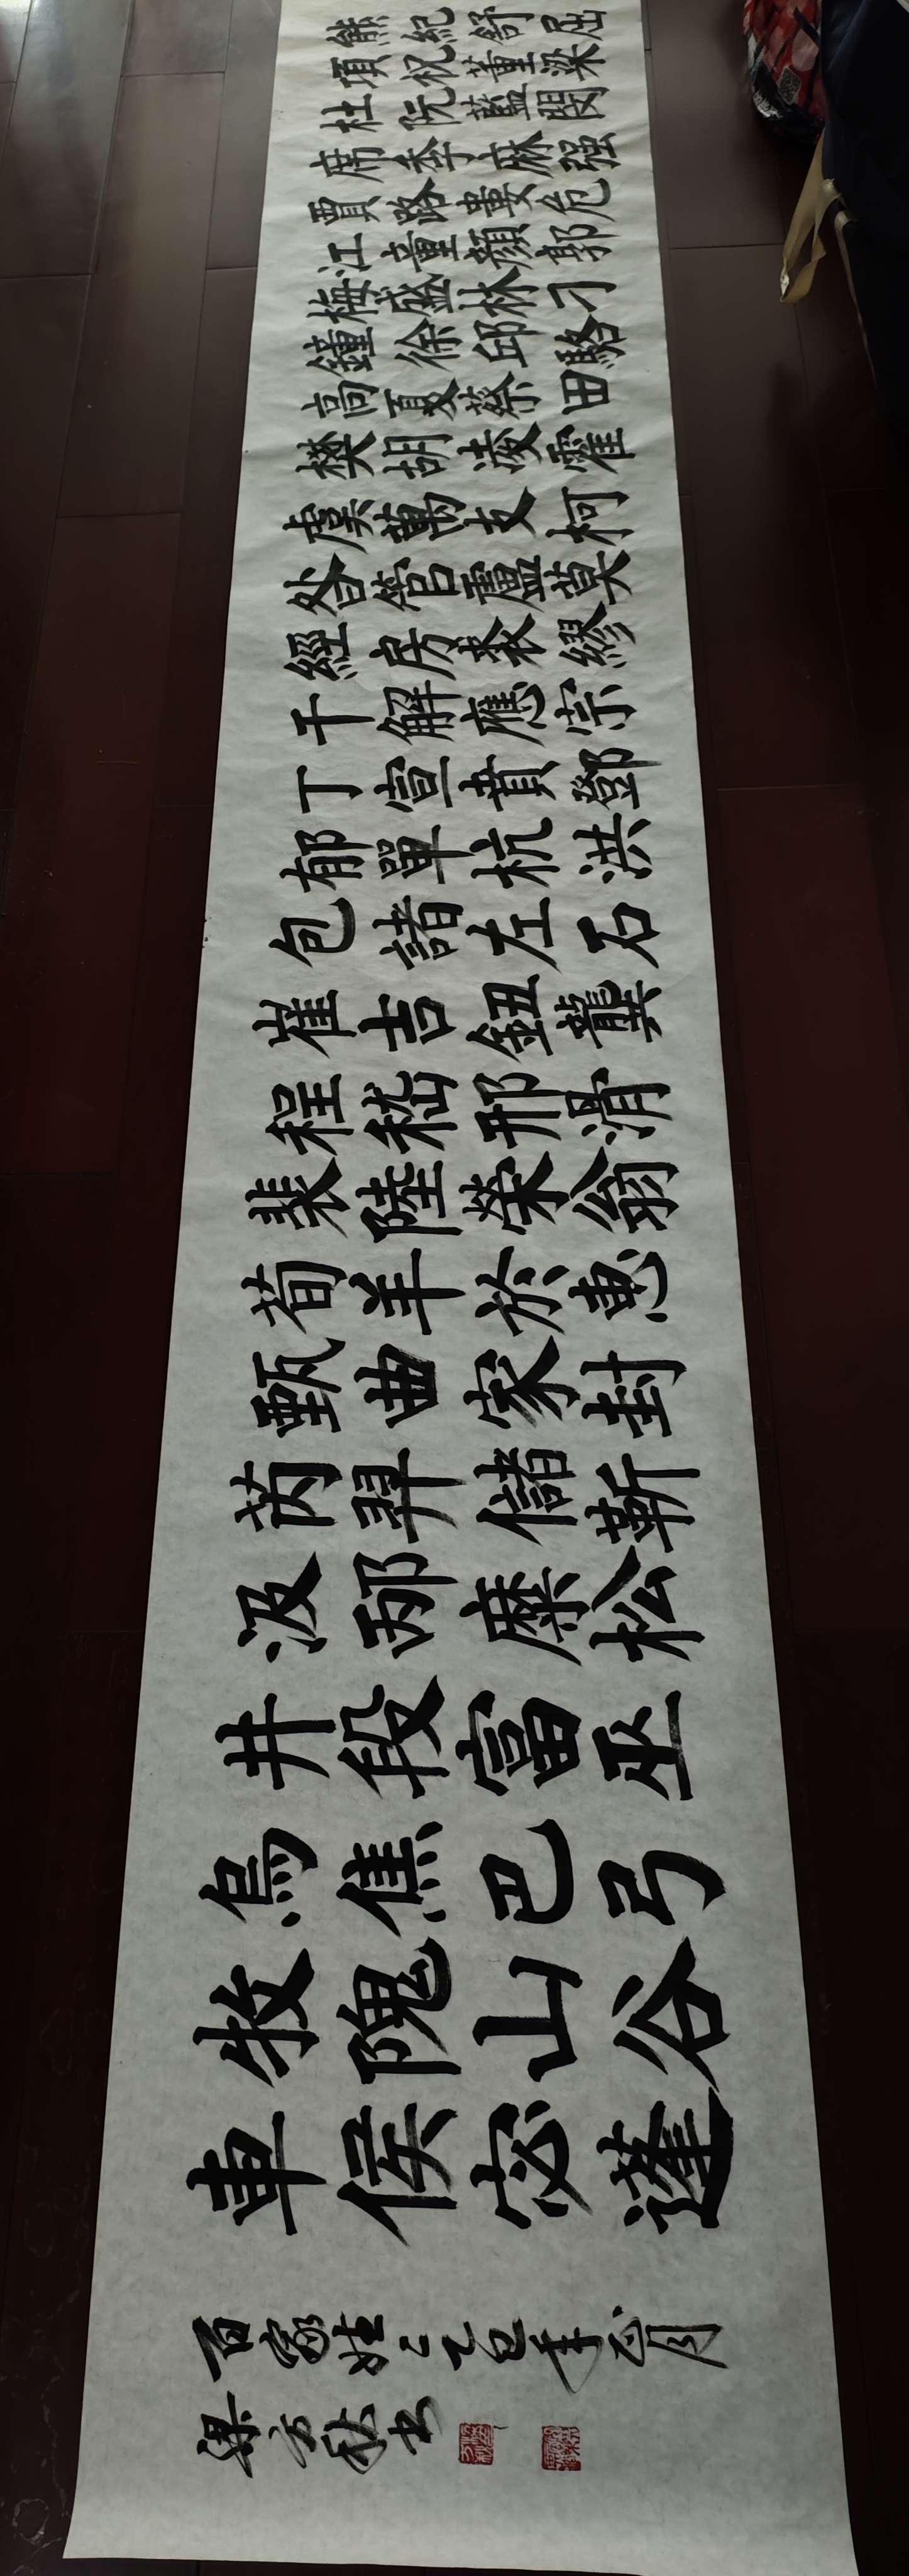 熊紀舒屈
項祝董梁
杜阮藍閔
席季麻强
賈路婁危
江童顏郭
梅盛林刁
鐘徐邱駱
高夏蔡田
樊胡淩霍
虞萬支柯
昝管盧莫
經房裘繆
干解應宗
丁宣賁鄧
郁單杭洪
包諸左石
崔吉鈕龔
程嵇邢滑
裴陸榮翁
荀羊於惠
甄曲家封
芮羿儲靳
汲邴糜松
井段富巫
烏焦巴弓
牧隗山谷
車侯宓蓬
百家姓乙巳年正月
梁方秋书